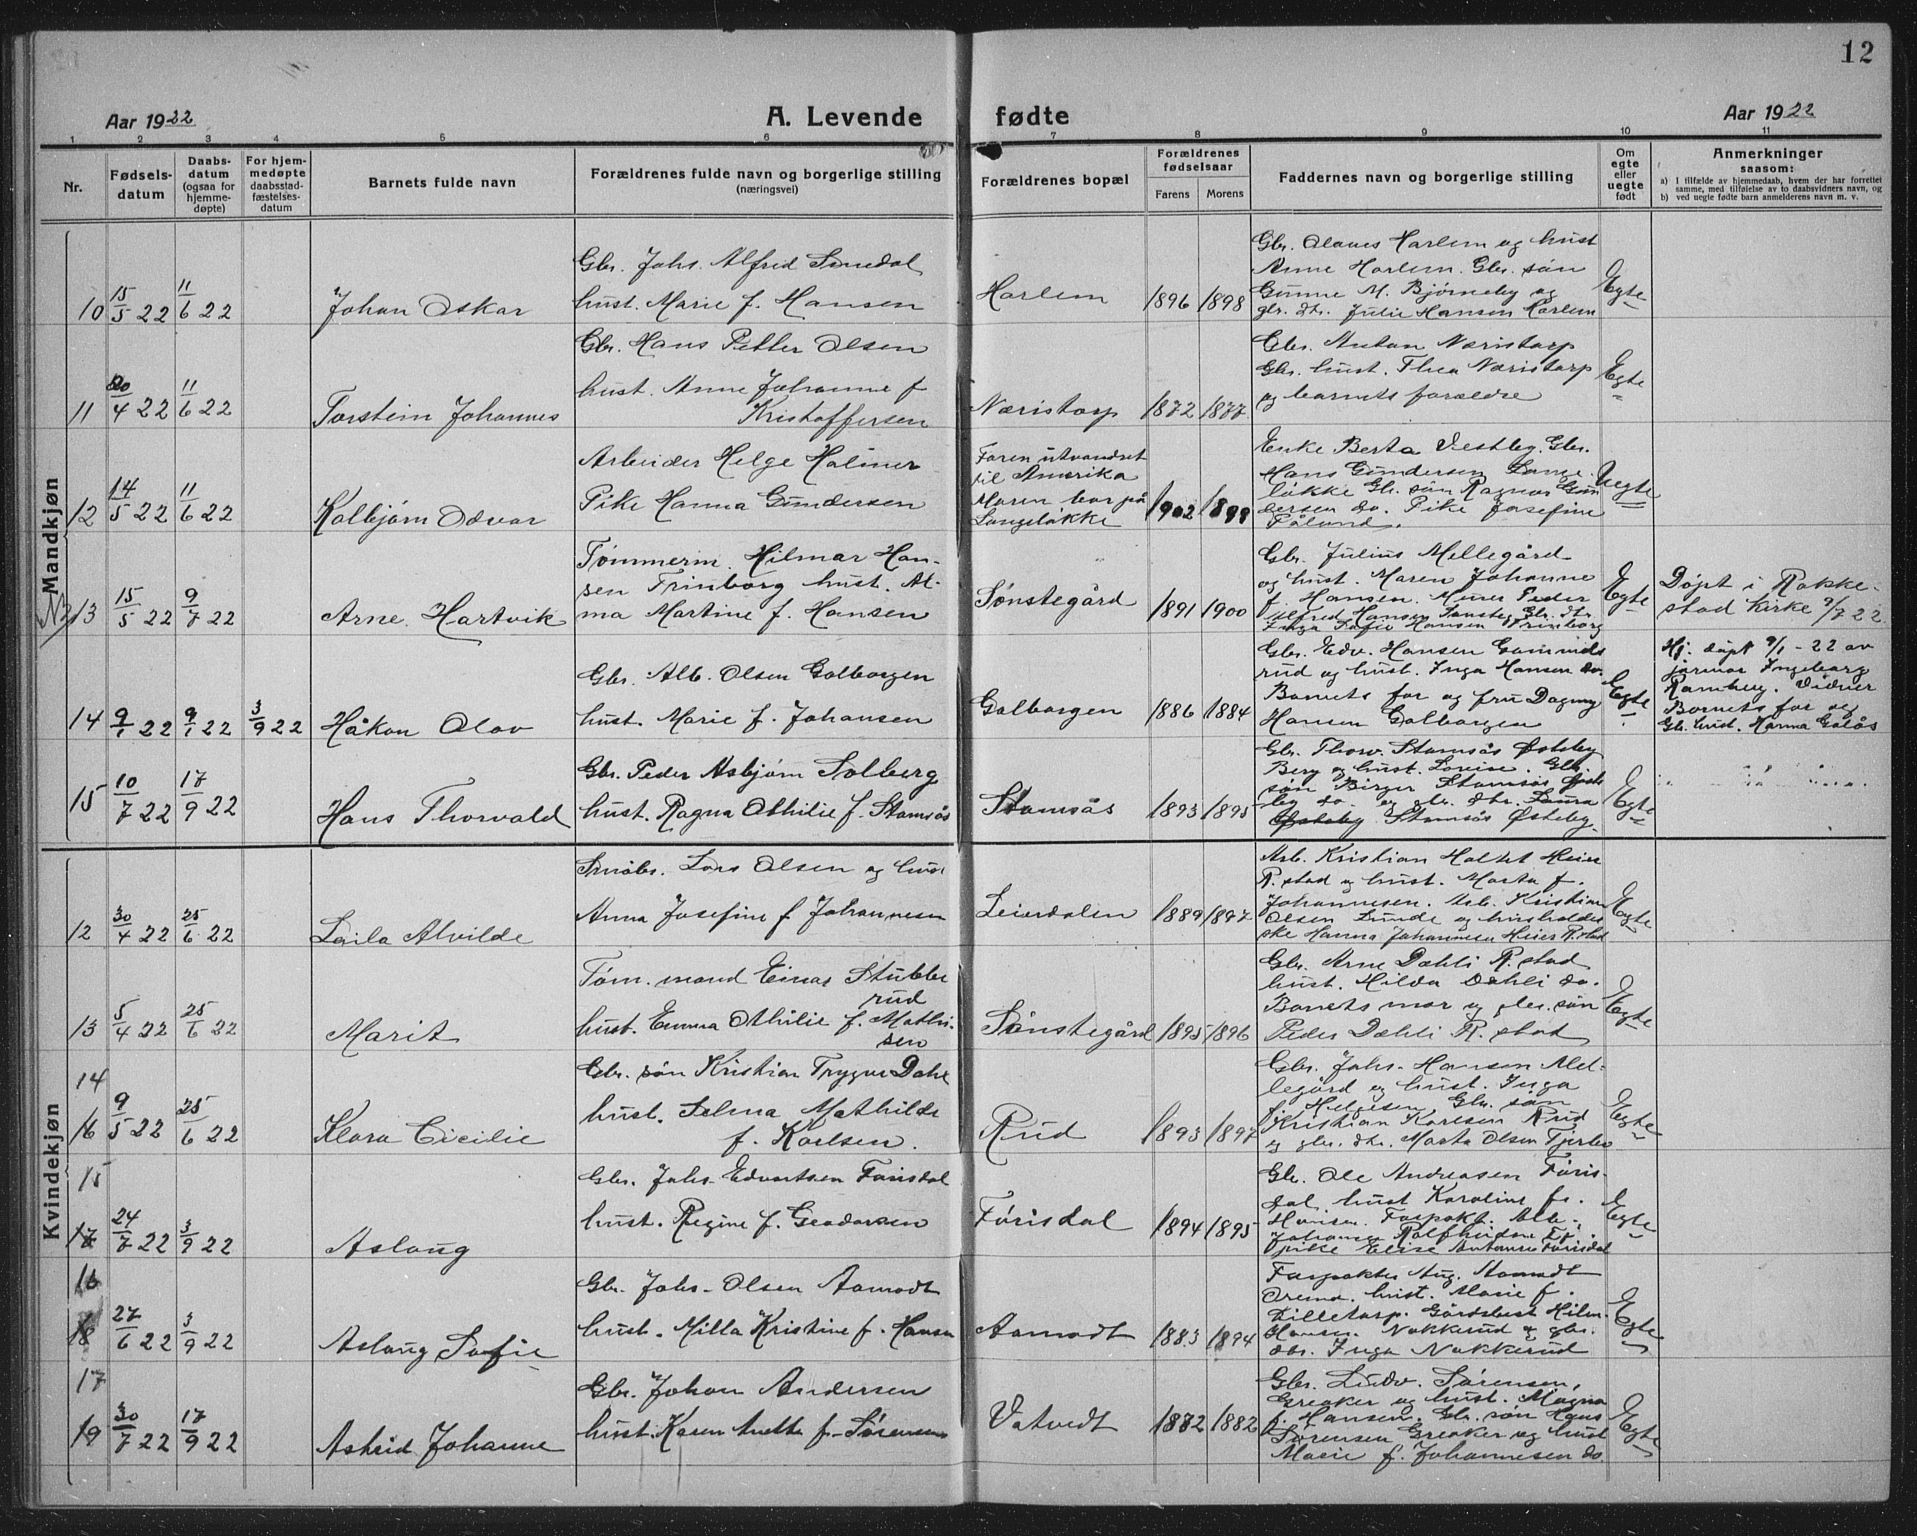 12
Aar 1922
A. Levende fødte
Aar 1922
1 2 3 4 5 6 7 8 9 10 11
Nr.
Fødsels-
datum
Daabs-
datum
(ogsaa for
hjemme-
døpte)
For hjem-
medøpte
daabsstad-
fæstelses-
datum
Barnets fulde navn
Forældrenes fulde navn og borgerlige stilling
(næringsvei)
Forældrenes bopæl
Forældrenes
fødselsaar
Farens Morens
Faddernes navn og borgerlige stilling
Om
egte
eller
uegte
født
Anmerkninger
saasom:
a) I tilfælde av hjemmedaab, hvem der har forrettet
samme, med tilføielse av to daabsvidners navn, og
b) ved uegte fødte barn anmelderens navn m. v.
Mandkjøn
10 15/5 22 11/6 22
Johan Oskar
Gbr. Johs. Alfred Smedal
hust. Marie f. Hansen
Harlem
1896 1898
Gbr. Olaves Harlem og hust
Anne Harlem. Gbr. søn
Gunne M. Bjørneby og
gbr. dtr. Julie Hansen Harlem
Egte
11 20/4 22 11/6 22
Torstein Johannes
Gbr. Hans Petter Olsen
hust. Anne Johanne f
Kristoffersen
Næristorp
1872 1877
Gbr. Anton Næristorp
Gbr. hust. Thea Næristorp
og barnets forældre
Egte
12 14/5 22 11/6 22
Kolbjørn Odvar
Arbeider Helge Holmer
Pike Hanna Gundersen
Faren utvandret
til Amerika
Moren bor på
Langeløkke
1902 1899
Enke Berta Vestby. Gbr.
Hans Gundersen Lange
løkke Gbr. søn Ragnar Gun
dersen do. Pike Josefine
Uegte
13 15/5 22 9/7 22
Arne Hartvik
Tømmerm. Hilmar Han-
sen Trinborg hust. Al-
ma Martine f. Hansen
Sønstegård
1891 1900
Gbr. Julius Mellegård
og hust. Maren Johanne
f. Hansen. Murer Peder
Hansen Gbr. dtr.
Inga Sofie Hansen Trinborg
Egte
Døpt i Rakke-
stad kirke 9/7 22
14 9/1 22 9/1 22 3/9 22
Håkon Olav
Gbr. Alb. Olsen Galborgen
hust. Marie f. Johansen
Galborgen
1886 1884
Gbr. Edv. Hansen Gammels
rud og hust. Inga Hansen do.
Barnets far og fru Dagny
Hansen Galborgen
Egte
Hj. døpt 9/1-22 av
jormor Ingeborg
Ramberg. Vidner
Barnets far og
Gbr. hust. Hanna
15 10/7 22 17/9 22
Hans Thorvald
Gbr. Peder Asbjørn Solberg
hust. Ragna Othilie f. Stamsås
Stamsås
1893 1895
Gbr. Thorv. Stamsås Østeby
Berg og hust. Lovise. Gbr.
søn Birger Stamsås Øste
by do. og gbr. dtr. Laura
Østeby Stamsås Østeby
Egte
Kvindekjøn
12 30/4 22 25/6 22
Laila Alvilde
Småbr. Lars Olsen og hus
Anna Josefine f Johannesen
Leierdalen
1889 1897
Arb. Kristian Holt Heier
R. stad og hust. Marta f.
Johannesen. Arb. Kristian
Olsen Lunde og husholder
ske Hanna Johannesen Heier R. stad
Egte
13 5/4 22 25/6 22
Marit
Tøm. mand Einar Stubbe
rud
hust. Emma Othilie f. Mathi
sen
Sønstegård
1895 1896
Gbr. Arne Dæhli R. stad
hust. Hilda Dæhli do.
Barnets mor og gbr. søn
Peder Dæhli R. stad
Egte
14
16 9/5 22 25/6 22
Klara Cicilie
Gbr. søn Kristian Trygve Dahl
hust. Selma Mathilde
f. Karlsen.
Rud
1893 1897
Gbr. Johs. Hansen Mel-
legård og hust. Inga
f. Helgesen Gbr. søn
Kristian Karlsen Rud
og gbr. dtr. Marta Olsen Tjerbo
Egte
15
17 24/7 22 3/9 22
Aslaug
Gbr. Johs. Edvartsen Førisdal
hust. Regine f. Geodorsen
Førisdal
1894 1895
Gbr. Ole Andreasen Føris-
dal, hust Karoline fr.
Hansen. Forpakt. Alb.
pike Elise Antonsen Førisdal
Egte
16
18 27/6 22 3/9 22
Aslaug Sofie
Gbr. Johs. Olsen Aamodt
hust. Milla Kristine f. Hansen
Aamodt
1883 1894
Forpakter Aug. Aamodt
hust. Marie f.
Lilletorp. Gårdsbest Hilm.
Hansen Nakkerud og gbr.
dtr. Inga Nakkerud
Egte
17
19 30/7 22 17/9 22
Astrid Johanne
Gbr. Johan Andersen
hust. Karen Anette f. Sørensen
Vatvedt
1882 1882
Gbr. Ludv. Sørensen,
Greaker og hust. Magna
f. Hansen. Gbr. søn Hans
Sørensen Greaker og hust
Marie f. Johannesen do
Egte